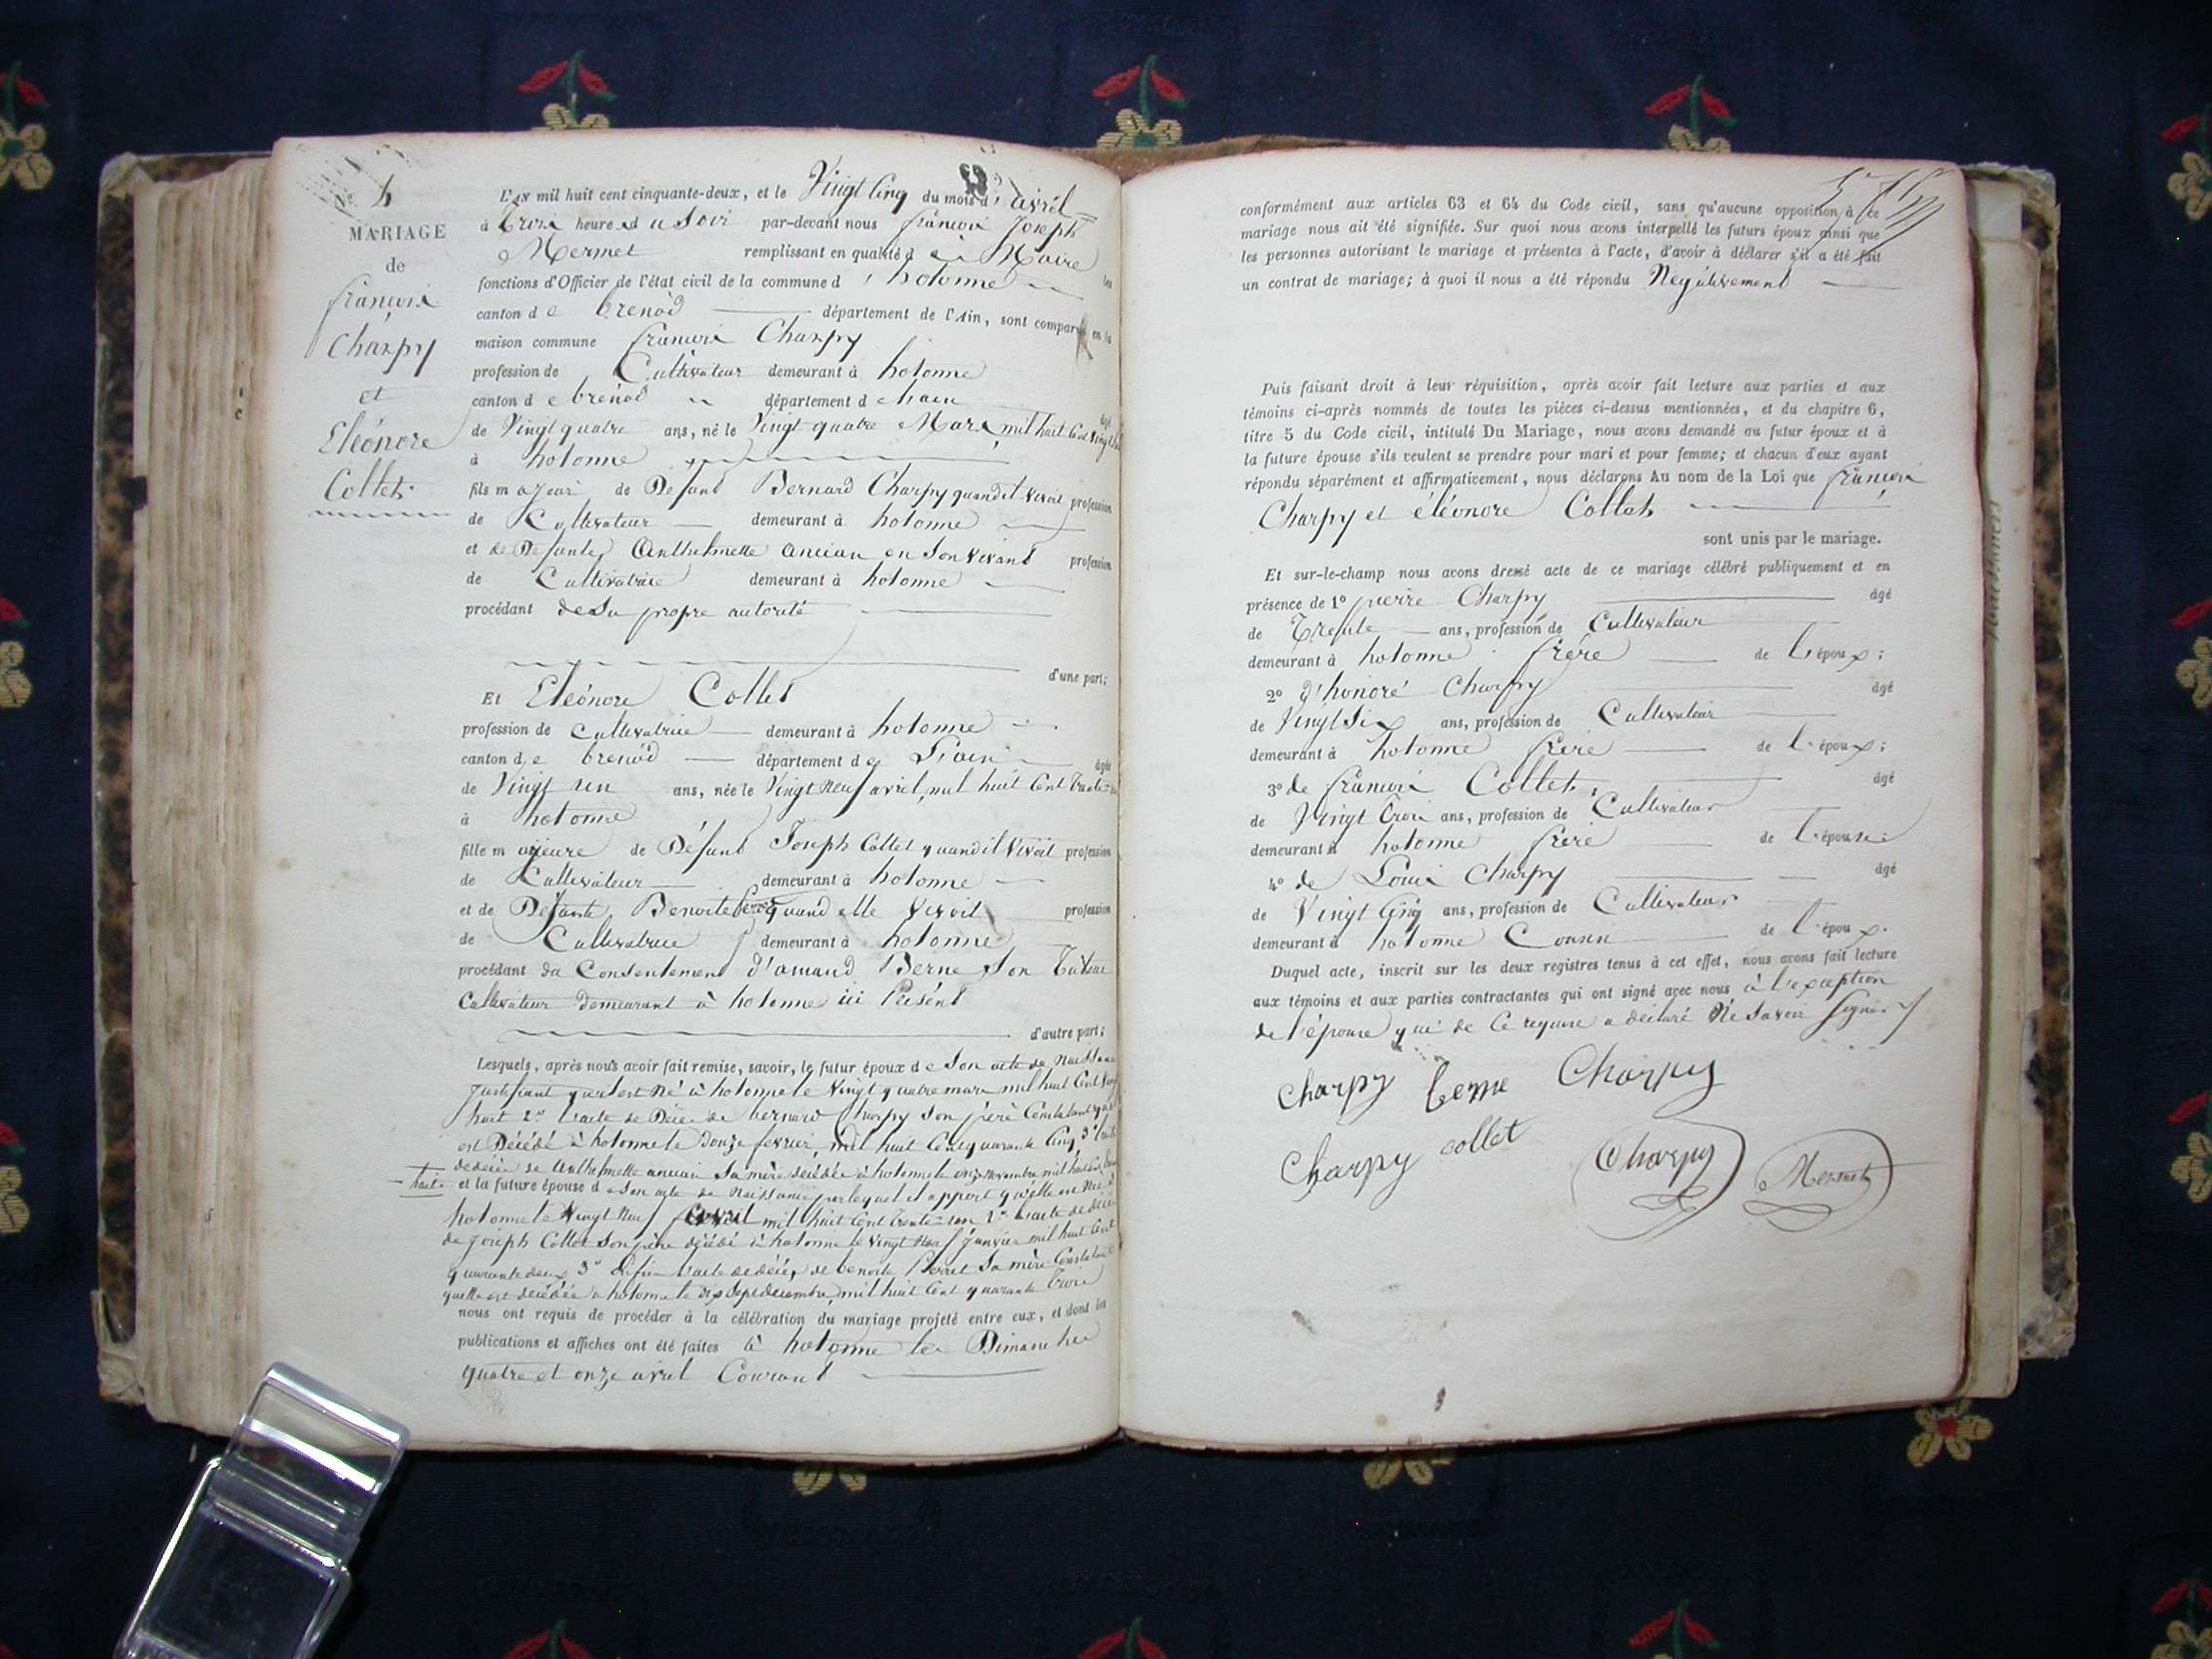 N° 4
MARIAGE
de
françois
Charpy
et
Eléonore
Collet.
L'an mil huit cent cinquante-deux, et le Vingt Cinq du mois d'avril
à Trois heures du Soir par-devant nous françois Joseph
Mermet remplissant en qualité de Maire les
fonctions d'Officier de l'état civil de la commune d'hotonne
canton de brenod département de l'Ain, sont comparus en la
maison commune françois Charpy
profession de Cultivateur demeurant à hotonne
canton de brénod département de l'ain âgé
de Vingt quatre ans, né le Vingt quatre Mars mil huit Cent Vingt huit
à hotonne
fils majeur de Defunt Bernard Charpy quand il vivoit profession
de Cultivateur demeurant à hotonne
et de Defunte Anthelmette ancian en son vivant profession
de Cultivatrice demeurant à hotonne
procédant de Sa propre autorité
d'une part;
Et Eléonore Collet
profession de cultivatrice demeurant à hotonne
canton de brenod département de L'ain âgée
de Vingt un ans, née le Vingt neuf avril, mil huit Cent Trente un
à hotonne
fille majeure de Défunt Joseph Collet quand il Vivoit profession
de Cultivateur demeurant à hotonne
et de Defunte Benoite quand elle Vivoit profession
de Cultivatrice demeurant à hotonne
procédant du Consentement d'amand Berne Son Tuteur
Cultivateur demeurant à hotonne ici Présent
d'autre part;
Lesquels, après nous avoir fait remise, savoir, le futur époux de Son acte de Naissance
Justifiant qu'il est Né à hotonne le Vingt quatre mars mil huit Cent Vingt
huit 2° l'acte de Décès de bernard Charpy Son père Constatant qu'il
est Décédé à hotonne le Douze fevrier, mil huit Cent quarante Cinq 3° l'acte
de décès de Anthelmette ancian Sa mère décédée à hotonne le onze novembre mil huit Cent
huit et la future épouse de Son acte de Naissance par lequel il appert qu'elle est Née à
hotonne le Vingt Neuf avril mil huit Cent Trente un 2° l'acte de décès
de Joseph Collet Son père décédé à hotonne le Vingt Neuf Janvier mil huit Cent
quarante deux 3° Enfin l'acte de décès de benoite Perret Sa mère Constatant
quelle est décédée à hotonne le dix Sept décembre, mil huit Cent quarante Trois
nous ont requis de procéder à la célébration du mariage projeté entre eux, et dont les
publications et affiches ont été faites à hotonne les Dimanches
quatre et onze avril Courant
conformément aux articles 63 et 64 du Code civil, sans qu'aucune opposition à ce
mariage nous ait été signifiée. Sur quoi nous avons interpellé les futurs époux ainsi que
les personnes autorisant le mariage et présentes à l'acte, d'avoir à déclarer s'il a été fait
un contrat de mariage; à quoi il nous a été répondu Négativement
Puis faisant droit à leur réquisition, après avoir fait lecture aux parties et aux
témoins ci-après nommés de toutes les pièces ci-dessus mentionnées, et du chapitre 6,
titre 5 du Code civil, intitulé Du Mariage, nous avons demandé au futur époux et à
la future épouse s'ils veulent se prendre pour mari et pour femme; et chacun d'eux ayant
répondu séparément et affirmativement, nous déclarons Au nom de la Loi que françois
Charpy et éléonore Collet
sont unis par le mariage.
Et sur-le-champ nous avons dressé acte de ce mariage célébré publiquement et en
présence de 1° pierre Charpy âgé
de Trente ans, profession de Cultivateur
demeurant à hotonne frère de l'époux;
2° d'honoré Charpy âgé
de Vingt Six ans, profession de Cultivateur
demeurant à hotonne frère de l'époux;
3° de françois Collet, âgé
de Vingt Trois ans, profession de Cultivateur
demeurant à hotonne frère de l'épouse;
4° de Louis Charpy âgé
de Vingt Cinq ans, profession de Cultivateur
demeurant à hotonne Cousin de l'époux.
Duquel acte, inscrit sur les deux registres tenus à cet effet, nous avons fait lecture
aux témoins et aux parties contractantes qui ont signé avec nous à l'exception
de l'épouse qui de Ce requise a déclaré Ne Savoir Signer
Charpy berne Charpy
Charpy collet Charpy Mermet